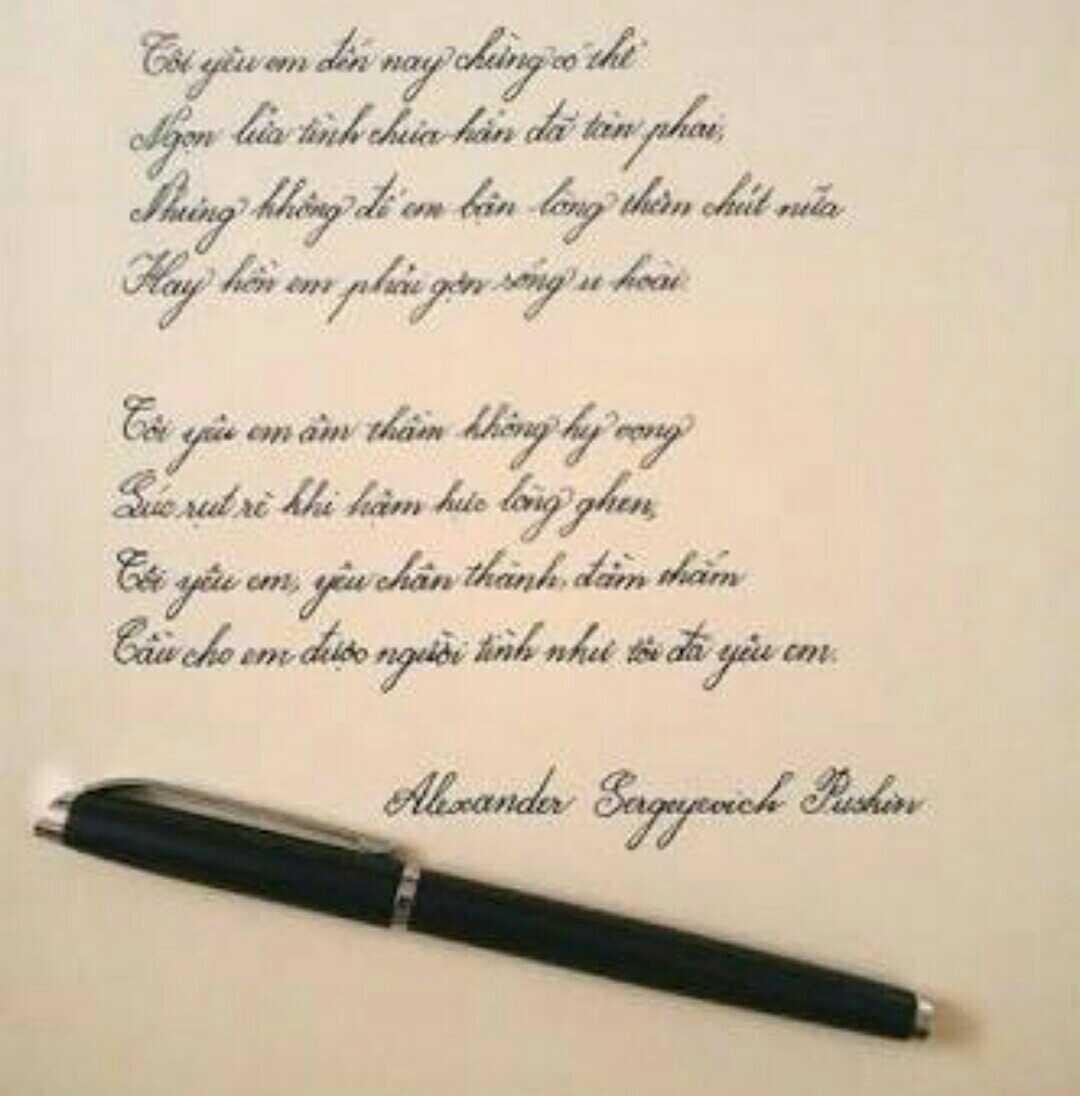 Tôi yêu em đến nay chừng có thể
Ngọn lửa tình chưa hẳn đã tàn phai;
Nhưng không để em bận lòng thêm chút nữa
Hay hồn em phải gợn sóng u hoài.
Tôi yêu em âm thầm không hy vọng
Lúc rụt rè khi hậm hực lòng ghen,
Tôi yêu em, yêu chân thành, đằm thắm
Cầu cho em được người tình như tôi đã yêu em.
Alexander Sergeyevich Pushin